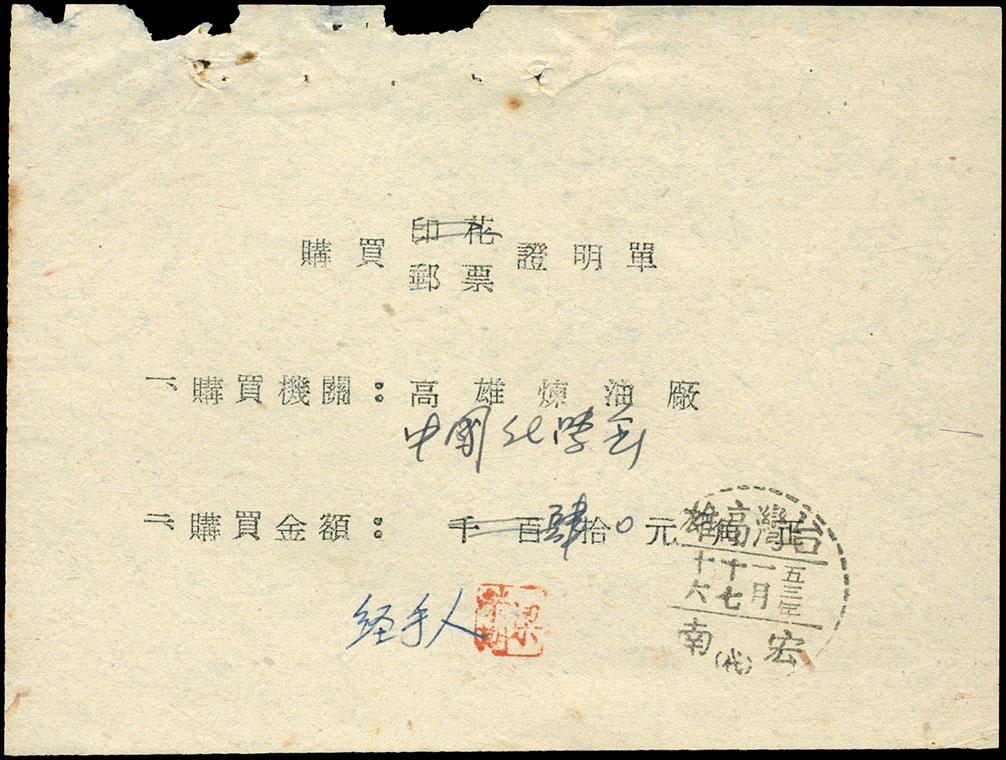 購買印花郵票證明單
一、購買機關：高雄煉油廠
中國化學会
二、購買金額：千百肆拾0元角正
经手人
台灣高雄
五三年一月十七 十六
宏南
(代)